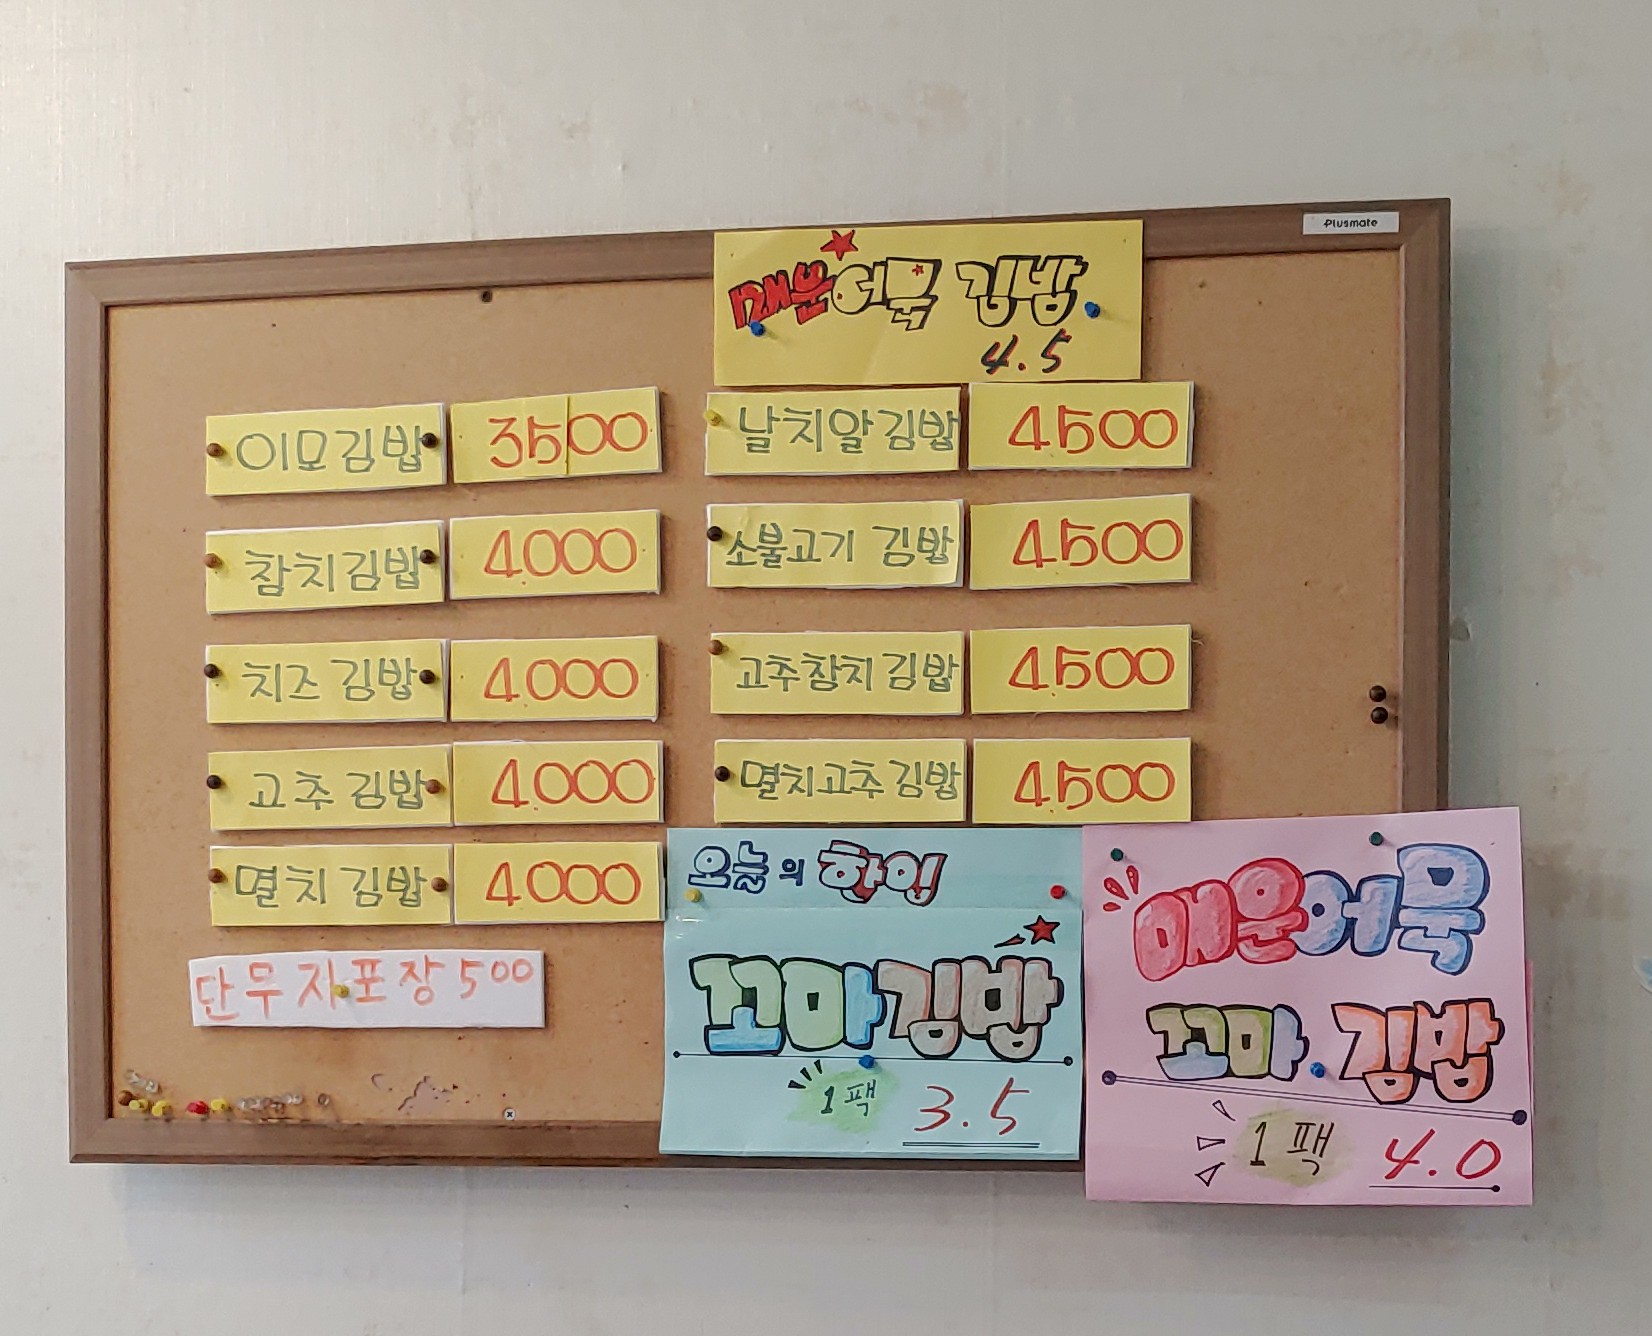 Plusmate
매운어묵 김밥
4.5
이모김밥 3500
참치김밥 4000
치즈김밥 4000
고추김밥 4000
멸치김밥 4000
단무지포장 500
날치알김밥 4500
소불고기 김밥 4500
고추참치김밥 4500
멸치고추김밥 4500
오늘의 할인
꼬마김밥
1팩 3.5
매운어묵
꼬마김밥
1팩 4.0